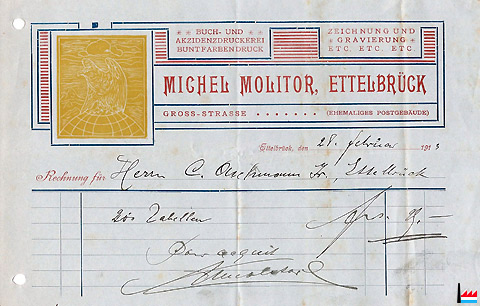 BUCH- UND
AKZIDENZDRUCKEREI
BUNTFARBENDRUCK
ZEICHNUNG UND
GRAVIERUNG
ETC. ETC. ETC.
MICHEL MOLITOR, ETTELBRÜCK
GROSS-STRASSE ....... (EHEMALIGES POSTGEBÄUDE)
Ettelbrück, den 28. Februar 1913
Rechnung für Herrn C. Jr., Ettelbrück
200 Tabellen Frs. 9.—
Pour acquit